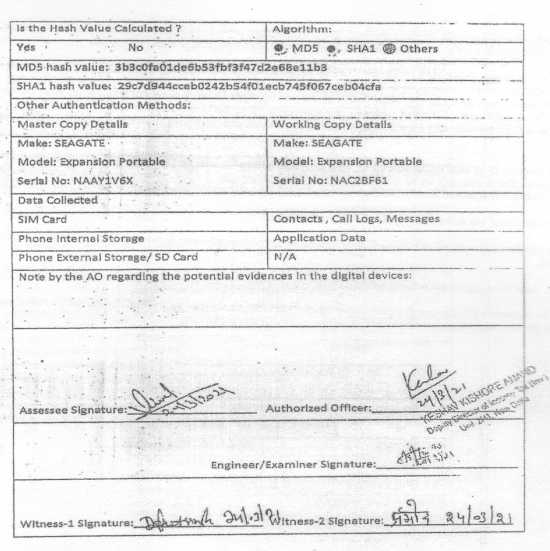 Is the Hash Value Calculated ? Algorithm:
Yes No MD5 SHA1 Others
MD5 hash value: 3b3c0fa01de6b53fbf3f47d2e68e11b3
SHA1 hash value: 29c7d944cceb0242b54f01ecb745f067ceb04cfa
Other Authentication Methods:
Master Copy Details Working Copy Details
Make: SEAGATE Make: SEAGATE
Model: Expansion Portable Model: Expansion Portable
Serial No: NAAY1V6X Serial No: NAC2BF61
Data Collected
SIM Card Contacts , Call Logs, Messages
Phone Internal Storage Application Data
Phone External Storage/ SD Card N/A
Note by the AO regarding the potential evidences in the digital devices:
Assessee Signature: 24/3/2021 Authorized Officer: 24/3/21
KESHAV KISHORE ANAND
Deputy Director of Income Tax (Inv.)
Engineer/Examiner Signature:
Witness-1 Signature: Witness-2 Signature: 24/03/21